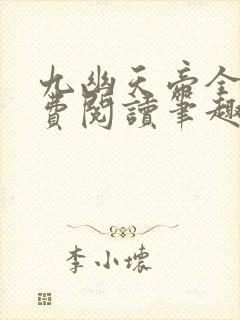 九幽天帝全
費閱讀筆趣
李小壞